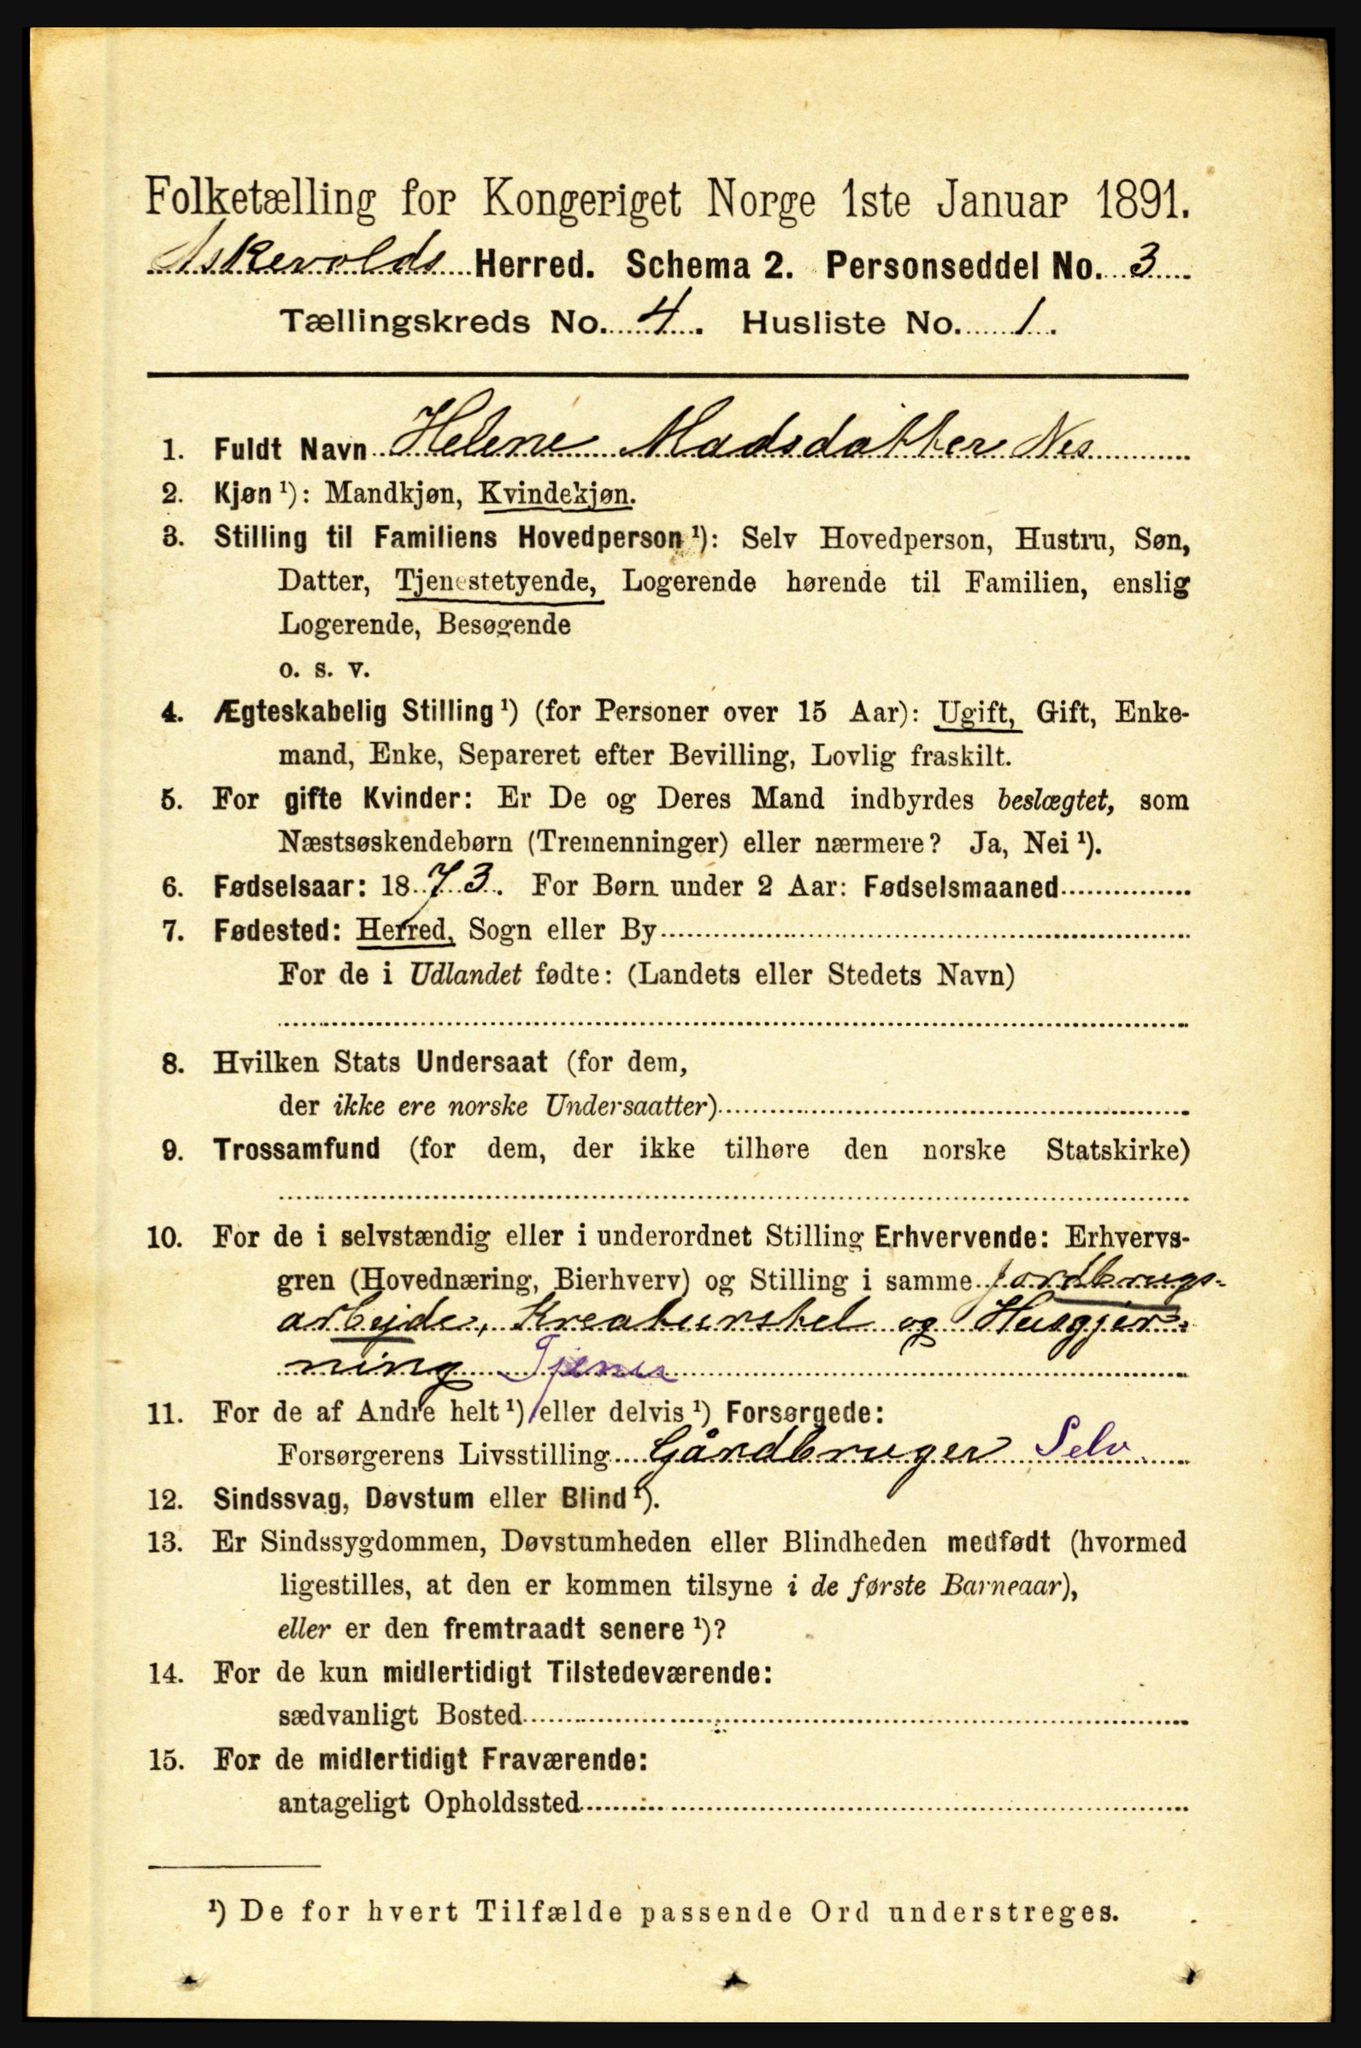 Folketælling for Kongeriget Norge 1ste Januar 1891.
Askevolds Herred. Schema 2. Personseddel No. 3
Tællingskreds No. 4. Husliste No. 1.
1. Fuldt Navn Helene Madsdatter Nes
2. Kjøn ¹): Mandkjøn, Kvindekjøn.
3. Stilling til Familiens Hovedperson ¹): Selv Hovedperson, Hustru, Søn,
Datter, Tjenestetyende, Logerende hørende til Familien, enslig
Logerende, Besøgende
o. s. v.
4. Ægteskabelig Stilling ¹) (for Personer over 15 Aar): Ugift, Gift, Enke-
mand, Enke, Separeret efter Bevilling, Lovlig fraskilt.
5. For gifte Kvinder: Er De og Deres Mand indbyrdes beslægtet, som
Næstsøskendebørn (Tremenninger) eller nærmere? Ja, Nei ¹).
6. Fødselsaar: 1873. For Børn under 2 Aar: Fødselsmaaned
7. Fødested: Herred, Sogn eller By
For de i Udlandet fødte: (Landets eller Stedets Navn)
8. Hvilken Stats Undersaat (for dem,
der ikke ere norske Undersaatter)
9. Trossamfund (for dem, der ikke tilhøre den norske Statskirke)
10. For de i selvstændig eller i underordnet Stilling Erhvervende: Erhvervs-
gren (Hovednæring, Bierhverv) og Stilling i samme Jordbrugs-
arbejde, Kreaturstel og Husgjer-
ning Tjener
11. For de af Andre helt ¹) eller delvis ¹) Forsørgede:
Forsørgerens Livsstilling Gårdbruger Selv
12. Sindssvag, Døvstum eller Blind ¹).
13. Er Sindssygdommen, Døvstumheden eller Blindheden medfødt (hvormed
ligestilles, at den er kommen tilsyne i de første Barneaar),
eller er den fremtraadt senere ¹)?
14. For de kun midlertidigt Tilstedeværende:
sædvanligt Bosted
15. For de midlertidigt Fraværende:
antageligt Opholdssted
¹) De for hvert Tilfælde passende Ord understreges.